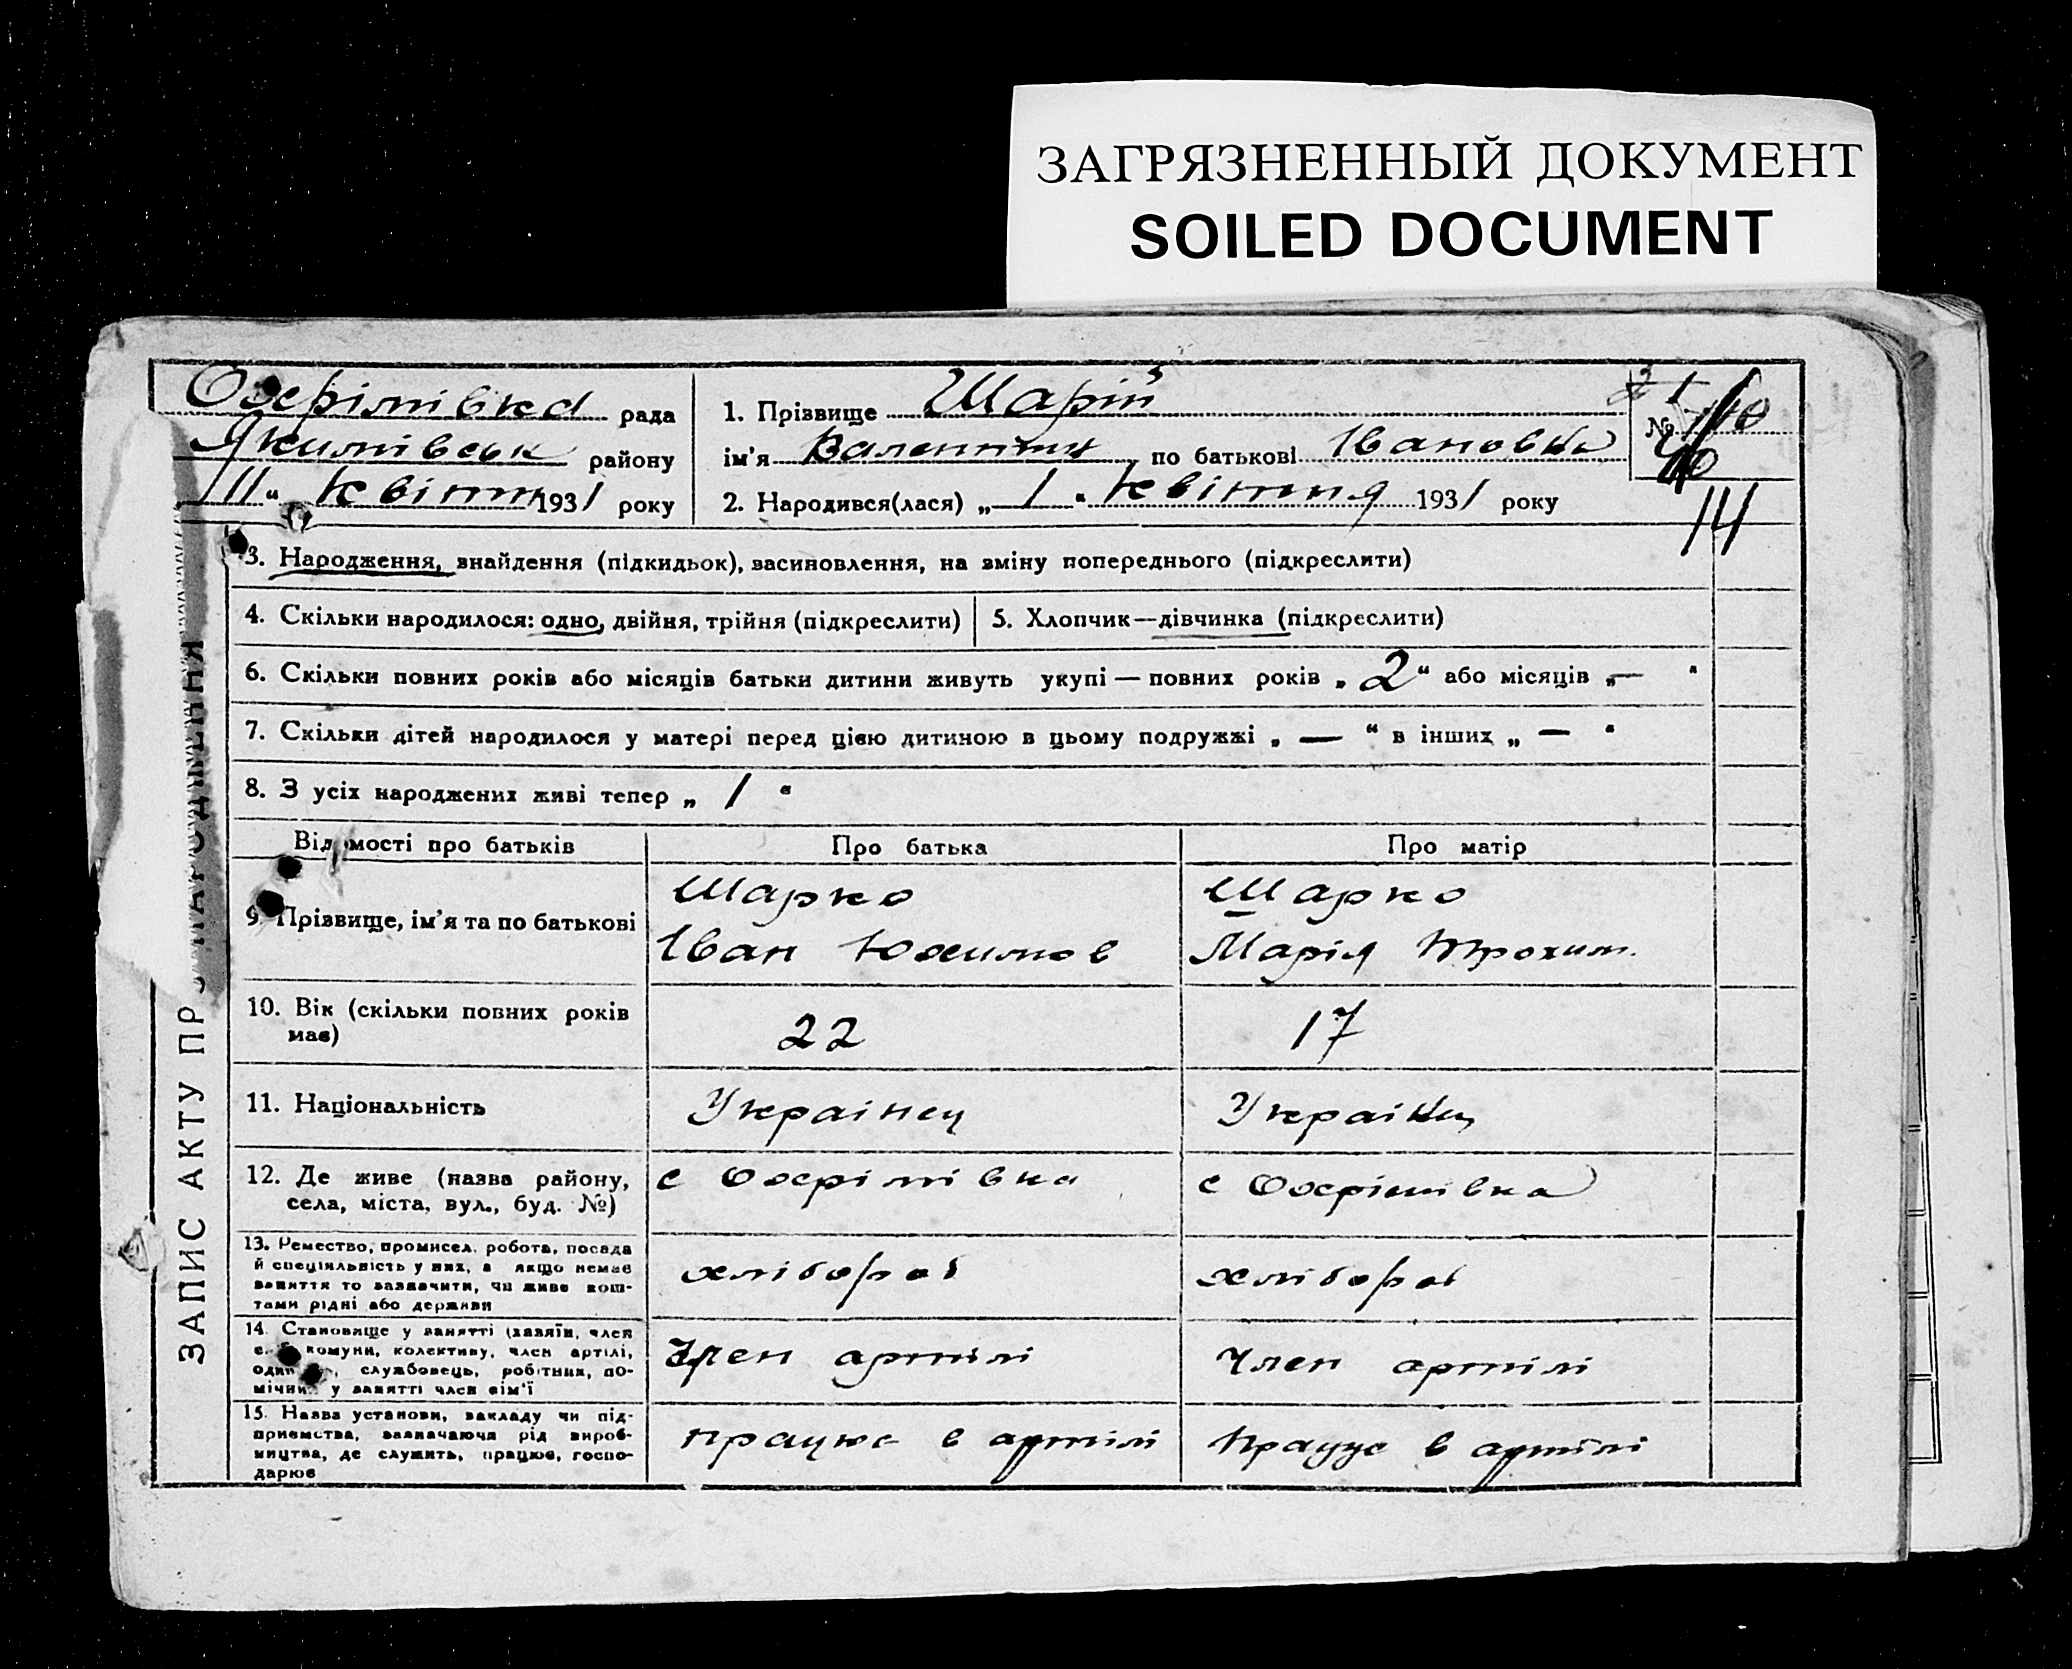 ЗАГРЯЗНЕННЫЙ ДОКУМЕНТ
SOILED DOCUMENT
Охрімівка рада
Якимівськ району
1931 року
1. Прізвище Шарій
ім'я Валентин по батькові Івановна
2. Народився(лася) „ 1 " квітня 1931 року
№
14
ЗАПИС АКТУ ПРО НАРОДЖЕННЯ
3. Народження, знайдення (підкидьок), засиновлення, на зміну попереднього (підкреслити)
4. Скільки народилося: одно, двійня, трійня (підкреслити)
5. Хлопчик—дівчинка (підкреслити)
6. Скільки повних років або місяців батьки дитини живуть укупі — повних років „ 2 “ або місяців „ — “
7. Скільки дітей народилося у матері перед цією дитиною в цьому подружжі „ — “ в інших „ — “
8. З усіх народжених живі тепер „ 1 “
Відомості про батьків
Про батька
Про матір
9. Прізвище, ім'я та по батькові
Шарко
Іван Юхимов
Шарко
Марія Трохим.
10. Вік (скільки повних років
має)
22
17
11. Національність
Українец
Українц
12. Де живе (назва району,
села, міста, вул., буд. №)
с Охрімівка
с Охрімівка
13. Ремество, промисел, робота, посада
й спеціяльність у них, а якщо немає
заняття то зазначити, чи живе кош-
тами рідні або держави
хлібороб
хлібороб
14. Становище у занятті (хазяїн, член
комуни, колективу, член артілі,
службовець, робітник, по-
мічник у занятті член сім'ї
Член артілі
Член артілі
15. Назва установи, закладу чи під-
приємства, зазначаючи рід вироб-
ництва, де служить, працює, госпо-
дарює
працює в артілі
Працує в артілі